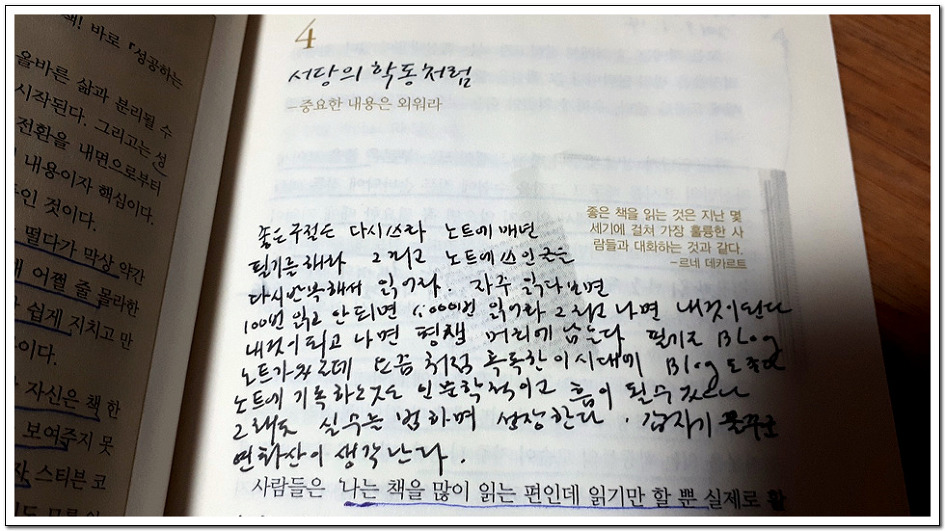 책! 바로 『성공하는
올바른 삶과 분리될 수
시작된다. 그리고는 성
전환을 내면으로부터
내용이자 핵심이다.
인 것이다.
떨다가 막상 약간
어쩔 줄 몰라한
쉽게 지치고 만
이다.
자신은 책 한
보여주지 못
스티븐 코
4
서당의 학동처럼
–중요한 내용은 외워라
좋은 책을 읽는 것은 지난 몇
세기에 걸쳐 가장 훌륭한 사
람들과 대화하는 것과 같다.
–르네 데카르트
좋은구절은 다시쓰라 노트에 매번
필기를해라 그리고 노트에쓰인글은
다시반복해서 읽어라. 자주 읽다보면
100번 읽고 안되면 1,000번 읽어라 그리고 나면 내것이된다
내것이되고 나면 평생 머리에 남는다 필기로 Blog
노트가 요즘 처럼 똑똑한 이시대에 Blog도
노트에 기록하는것도 인문학적이고 흠이 될수
그래도 실수는 범하며 성장한다. 갑자기
면화산이 생각난다.
사람들은 '나는 책을 많이 읽는 편인데 읽기만 할 뿐 실제로 활